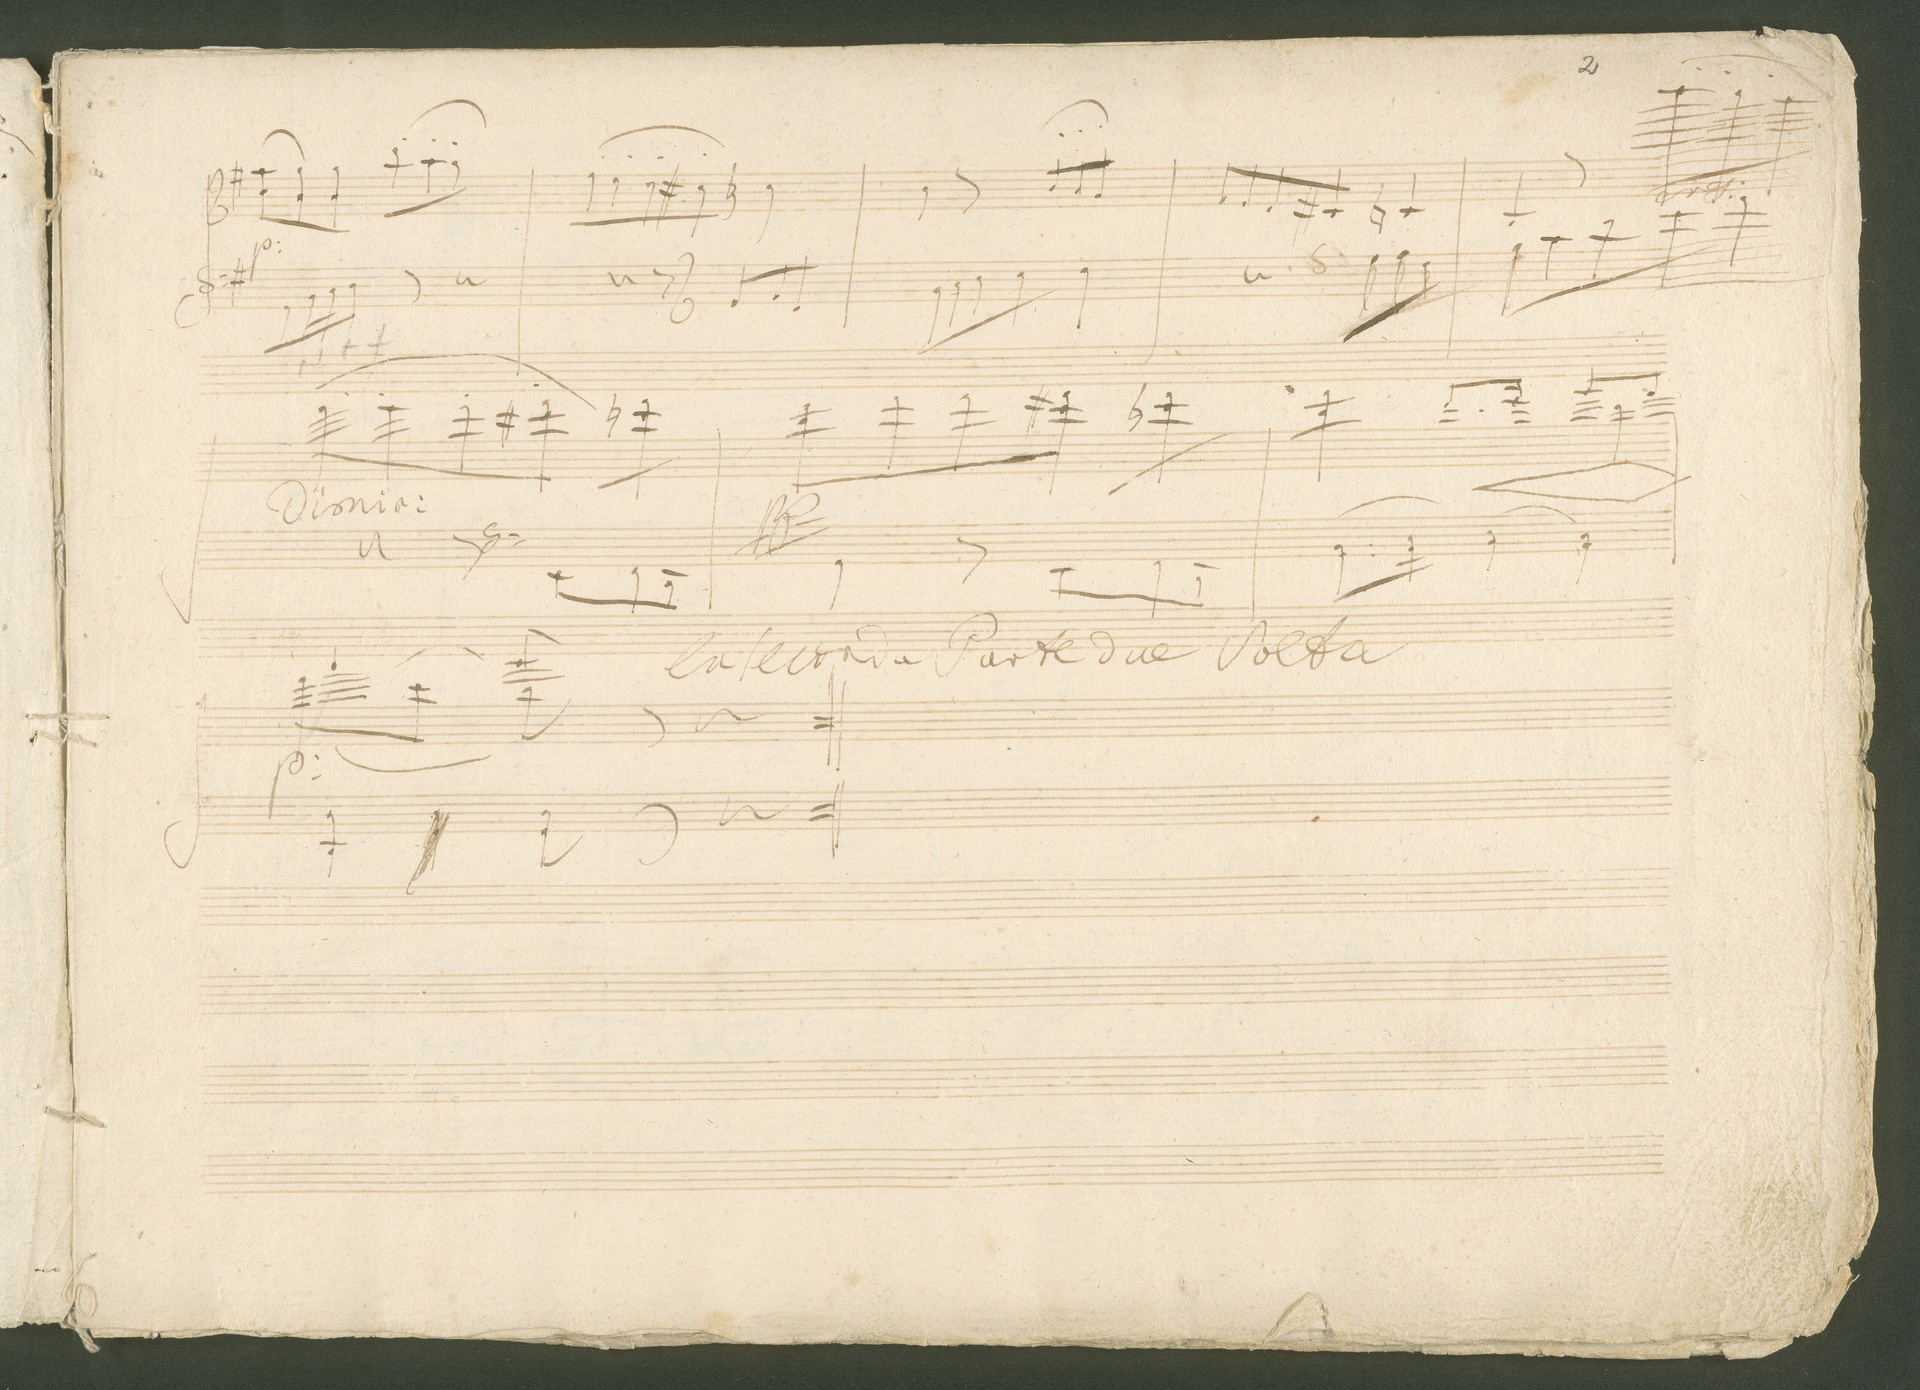 2
cresc:
p:
Dimin:
pp
la seconda Parte due Volta
p: